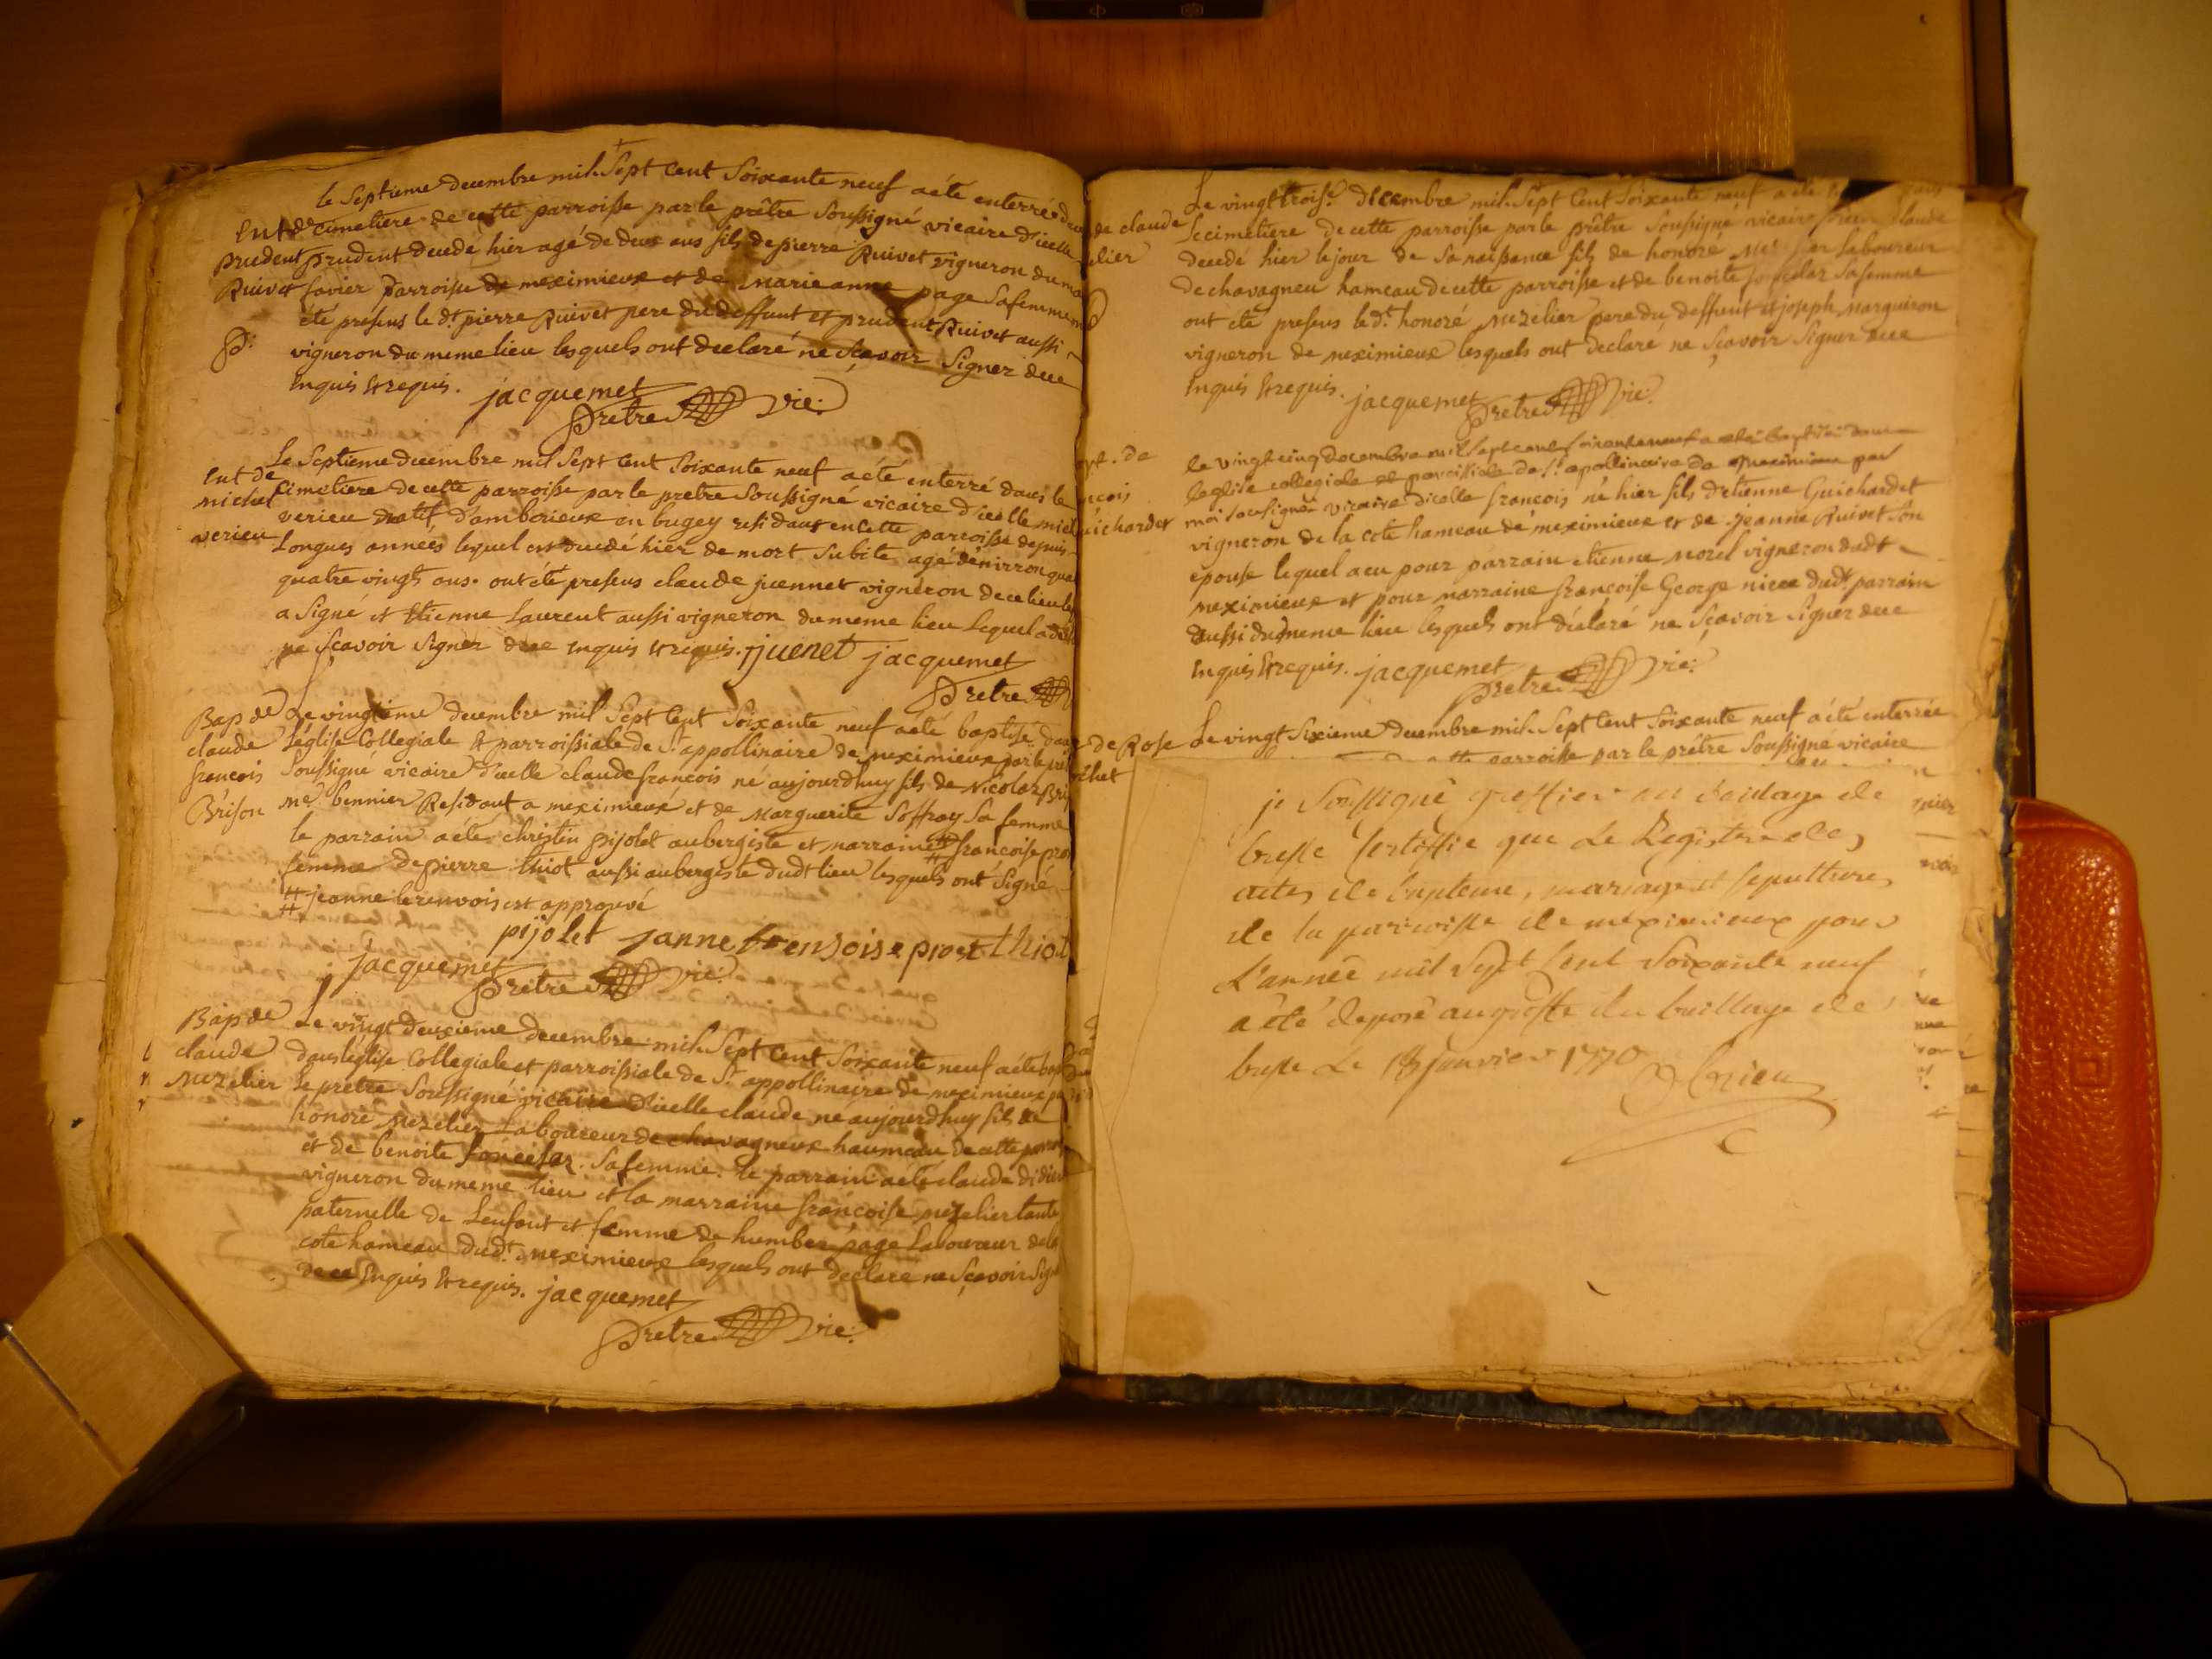 le Septieme decembre mil Sept Cent Soixante neuf a été enterré
Ent de
prudent
Ruivet
P.
cimetiere de cette parroisse par le prêtre Soussigné vicaire d'icelle
prudent decedé hier agé de deux ans fils de pierre Ruivet vigneron du
favier parroisse de meximieux et de Marie anne page Sa femme
été presens le dt. pierre Ruivet pere du deffunt et prudent Ruivet aussi
vigneron du meme lieu lesquels ont declaré ne Sçavoir Signer de ce
Enquis et requis. jacquemet
Pretre Vic:
Ent de
michel
verieu
Le Septieme decembre mil Sept Cent Soixante neuf a été enterré dans le
cimetiere de cette parroisse par le pretre Soussigné vicaire d'icelle
verieu natif d'amberieux en bugey residant en cette parroisse depuis
Longues années lequel est decedé hier de mort Subite agé d'enirron
quatre vingts ans. ont été presens claude juennet vigneron de ce lieu
a Signé et Etienne Laurent aussi vigneron du meme lieu lequel a
ne Sçavoir Signer de ce Enquis et requis. juenet jacquemet
Pretre
Bap de
claude
françois
Brison
Le vingtieme decembre mil Sept Cent Soixante neuf a été baptisé dans
L'église Collegiale & parroissiale de St. appollinaire de meximieux par le
Soussigné vicaire d'icelle claude françois né aujourdhuy fils de Nicolas
me. bennier Residant a meximieux et de Marguerite Soffray Sa femme
le parrain a été christin pijolet aubergiste et marraine # françoise
femme de pierre thiot aussi aubergiste dudt lieu lesquels ont Signé
# jeanne le renvois est approuvé
pijolet janne frensoise prost thiot
jacquemet
Prêtre Vic:
Bap de
claude
Mezelier
Le vingt deuxieme decembre mil Sept Cent Soixante neuf a été
dans l'église Collegiale et parroissiale de St. appollinaire de meximieux
Le prêtre Soussigné vicaire d'icelle claude né aujourdhuy fils de
honoré Mezelier Laboureur de chavagneux haumeau de cette
et de benoite Sa femme. le parrain a été claude didier
vigneron du meme lieu et la marraine françoise mezelier tante
paternelle de Lenfant et femme de humber page Laboureur de la
cote hameau dudt. meximieux lesquels ont declaré ne Sçavoir
de ce Enquis & requis. jacquemet
Prêtre vic:
de claude
elier
Le vingt troise. decembre mil Sept Cent Soixante neuf a été
Le cimetiere de cette parroisse par le prêtre Soussigné vicaire
decedé hier le jour de Sa naissance fils de honoré Laboureur
de chavagneu hameau de cette parroisse et de benoite Sa femme
ont été presens le dt. honoré Mezelier pere du deffunt et joseph Marguiron
vigneron de meximieux lesquels ont declaré ne Sçavoir Signer de ce
Enquis & requis. jacquemet
Prêtre vic:
de
uichardet
le vingt cinq decembre mil sept cent soixante neuf a eté baptisé dans
leglise collegiale et paroissiale de St. apollinaire de meximieux par
moi soussigné vicaire dicelle françois né hier fils d'etienne Guichardet
vigneron de la cote hameau de meximieux et de jeanne Ruivet Son
epouse lequel a eu pour parrain etienne Morel vigneron dudt
meximieux et pour marraine françoise George niece dudt. parrain
aussi du meme lieu lesquels ont déclaré ne Sçavoir Signer de ce
Enquis & requis. jacquemet
Prêtre vic:
de Rose
Le vingt Sixieme decembre mil Sept Cent Soixante neuf a été enterrée
cette parroisse par le prêtre Soussigné vicaire
je Soussigné greffier au bailiage de
bresse Certiffie que Le Registre des
actes de bapteme, mariage et sepulture
de la parroisse de meximieux pour
L'année mil Sept Cent Soixante neuf
a été deposé au greffe du bailliage de
bresse Le 13 janvier 1770